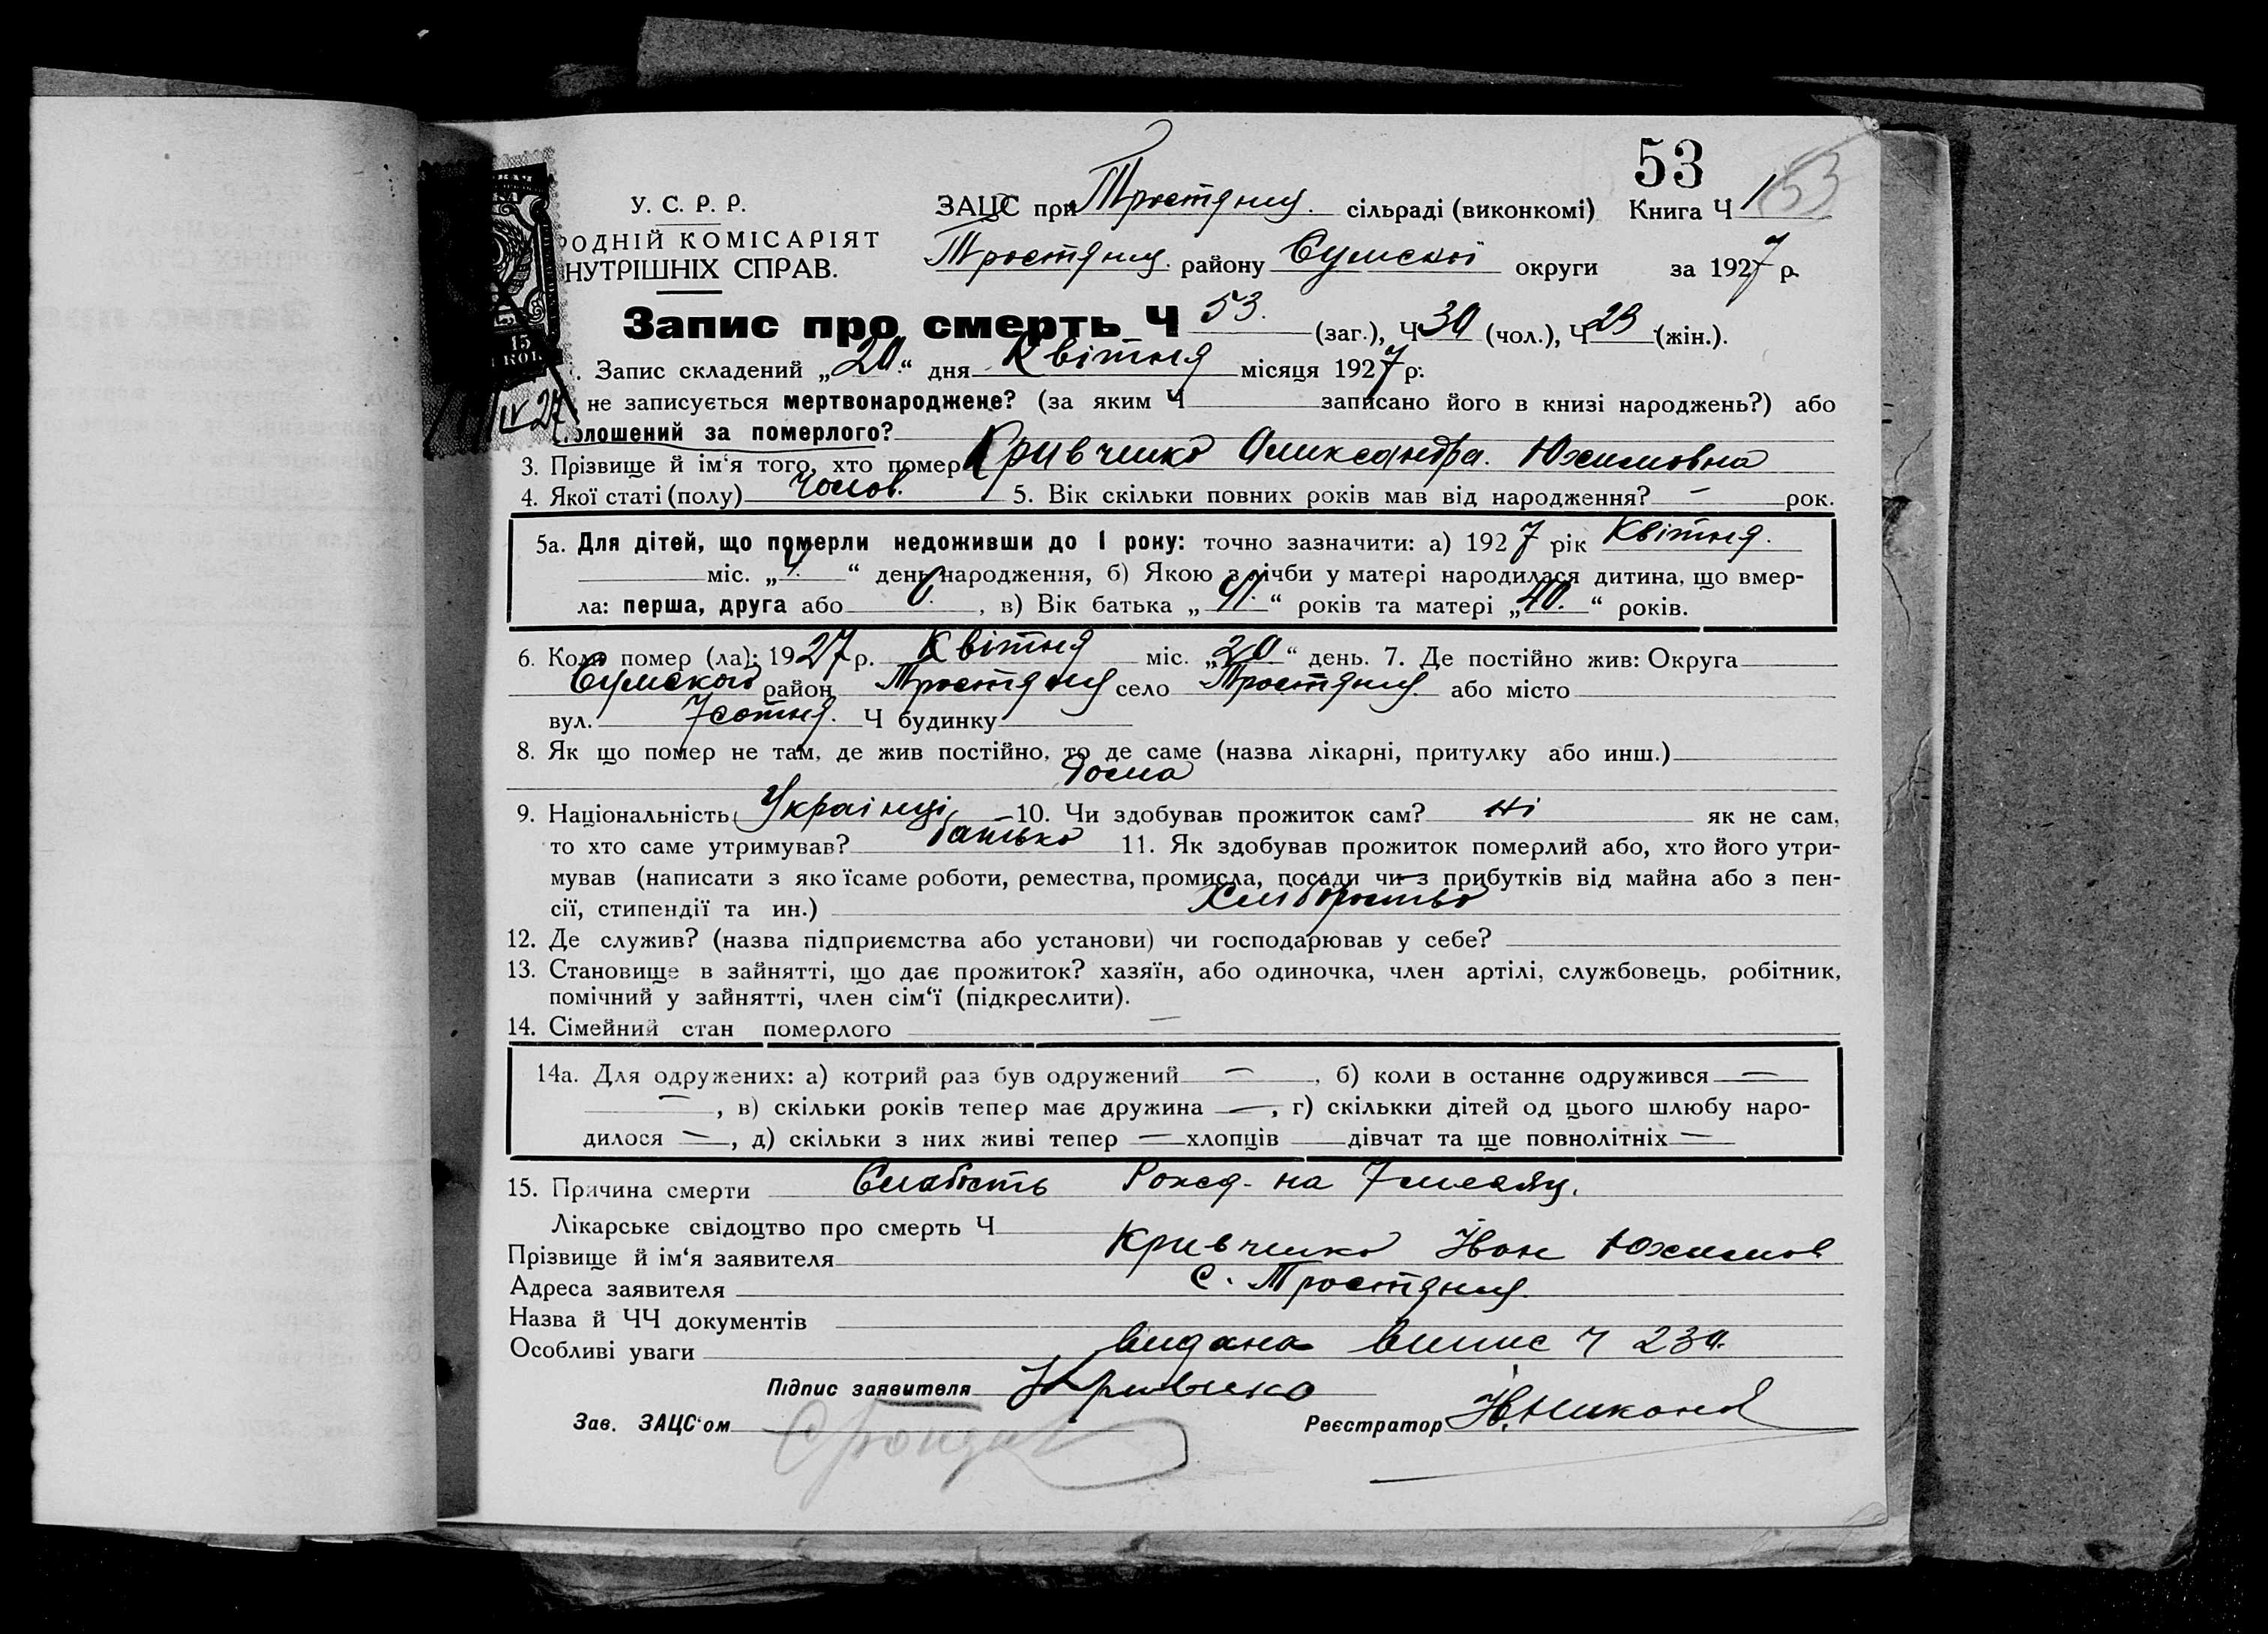 53
153
У. С. Р. Р.
ЗАЦС при Тростянец. сільраді (виконкомі) Книга Ч 1
РОДНІЙ КОМІСАРІЯТ
НУТРІШНІХ СПРАВ.
Тростянец. району Сумскої округи за 1927 р.
Запис про смерть Ч 53. (заг.), Ч 30 (чол.), Ч 23 (жін.).
15
КОП.
. Запис складений „20.“ дня Квітня місяця 1927 р.
не записується мертвонароджене? (за яким Ч записано його в книзі народжень?) або
IV 27
олошений за померлого?
3. Прізвище й ім‘я того, хто помер Кривченко Олександра. Юхимовна
4. Якої статі (полу) Чолов. 5. Вік скільки повних років мав від народження? — рок.
5а. Для дітей, що померли недоживши до 1 року: точно зазначити: а) 1927 рік Квітня.
міс. „4.“ день народження, б) Якою з лічби у матері народилася дитина, що вмер-
ла: перша, друга або 6. , в) Вік батька „41.“ років та матері „40.“ років.
6. Коли помер (ла): 1927 р. Квітня міс. „20“ день. 7. Де постійно жив: Округа
Сумского район Тростянец село Тростянец. або місто
вул. 7 сотня. Ч будинку
8. Як що помер не там, де жив постійно, то де саме (назва лікарні, притулку або инш.)
дома
9. Національність Українці 10. Чи здобував прожиток сам? Ні як не сам,
то хто саме утримував? батько 11. Як здобував прожиток померлий або, хто його утри-
мував (написати з яко їсаме роботи, ремества, промисла, посади чи з прибутків від майна або з пен-
сії, стипендії та ин.) Хліборобство
12. Де служив? (назва підприємства або установи) чи господарював у себе?
13. Становище в зайнятті, що дає прожиток? хазяїн, або одиночка, член артілі, службовець, робітник,
помічний у зайнятті, член сім‘ї (підкреслити).
14. Сімейний стан померлого —
14а. Для одружених: а) котрий раз був одружений — , б) коли в останнє одружився —
— , в) скільки років тепер має дружина — , г) скількки дітей од цього шлюбу наро-
дилося — , д) скільки з них живі тепер — хлопців дівчат та ще повнолітніх —
15. Причина смерти Слабость Рожд. на 7 месяц.
Лікарське свідоцтво про смерть Ч
Прізвище й ім‘я заявителя Кривченко Іван Юхимов
Адреса заявителя С. Тростянец.
Назва й ЧЧ документів
Особливі уваги видана випис Ч 230.
Підпис заявителя Кривченко
Зав. ЗАЦС‘ом Реєстратор